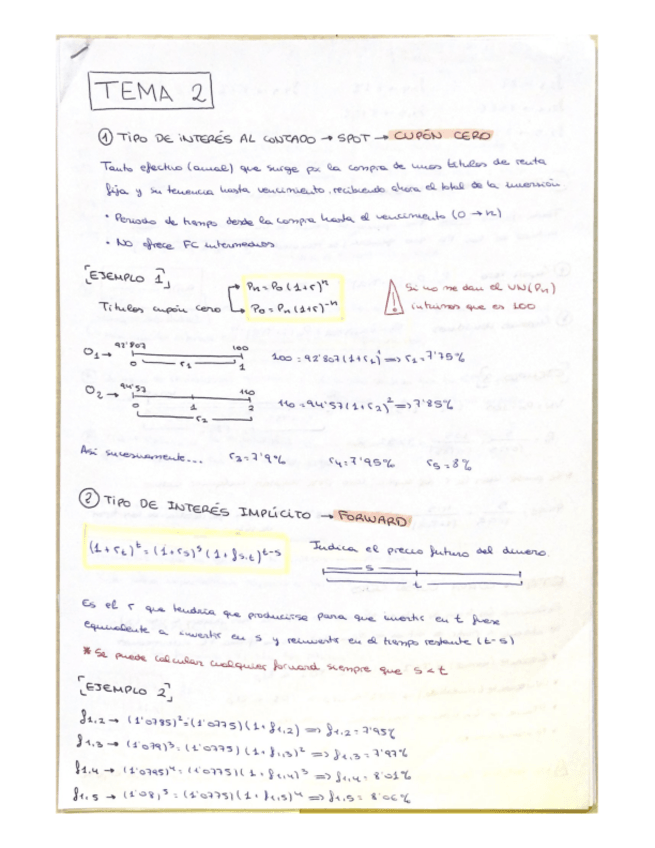 TEMA 2
① TIPO DE INTERÉS AL CONTADO → SPOT → CUPÓN CERO
Tanto efectivo (anual) que surge por la compra de unos títulos de renta
fija y su tenencia hasta vencimiento, recibiendo ahora el total de la inversión
• Periodo de tiempo desde la compra hasta el vencimiento (0 → n)
• No ofrece FC intermedios
[EJEMPLO 1]
Títulos cupón cero
Pn = P0 (1+r)^n
P0 = Pn (1+r)^-n
! Si no me dan el VN (Pn)
intuimos que es 100
O1 → 92'807 100
0 r1 1
100 = 92'807 (1+r1)^1 => r1 = 7'75%
O2 → 94'57 110
0 1 2
r2
110 = 94'57 (1+r2)^2 => 7'85%
Así sucesivamente... r3 = 7'9% r4 = 7'95% r5 = 8%
② TIPO DE INTERÉS IMPLÍCITO → FORWARD
(1+rt)^t = (1+rs)^s (1+fs,t)^t-s
Indica el precio futuro del dinero.
s
t
Es el r que tendría que producirse para que invertir en t fuese
equivalente a invertir en s y reinvertir en el tiempo restante (t-s)
* Se puede calcular cualquier forward siempre que s < t
[EJEMPLO 2]
f1,2 → (1'0785)^2 = (1'0775) (1+f1,2) => f1,2 = 7'95%
f1,3 → (1'079)^3 = (1'0775) (1+f1,3)^2 => f1,3 = 7'97%
f1,4 → (1'0795)^4 = (1'0775) (1+f1,4)^3 => f1,4 = 8'01%
f1,5 → (1'08)^5 = (1'0775) (1+f1,5)^4 => f1,5 = 8'06%